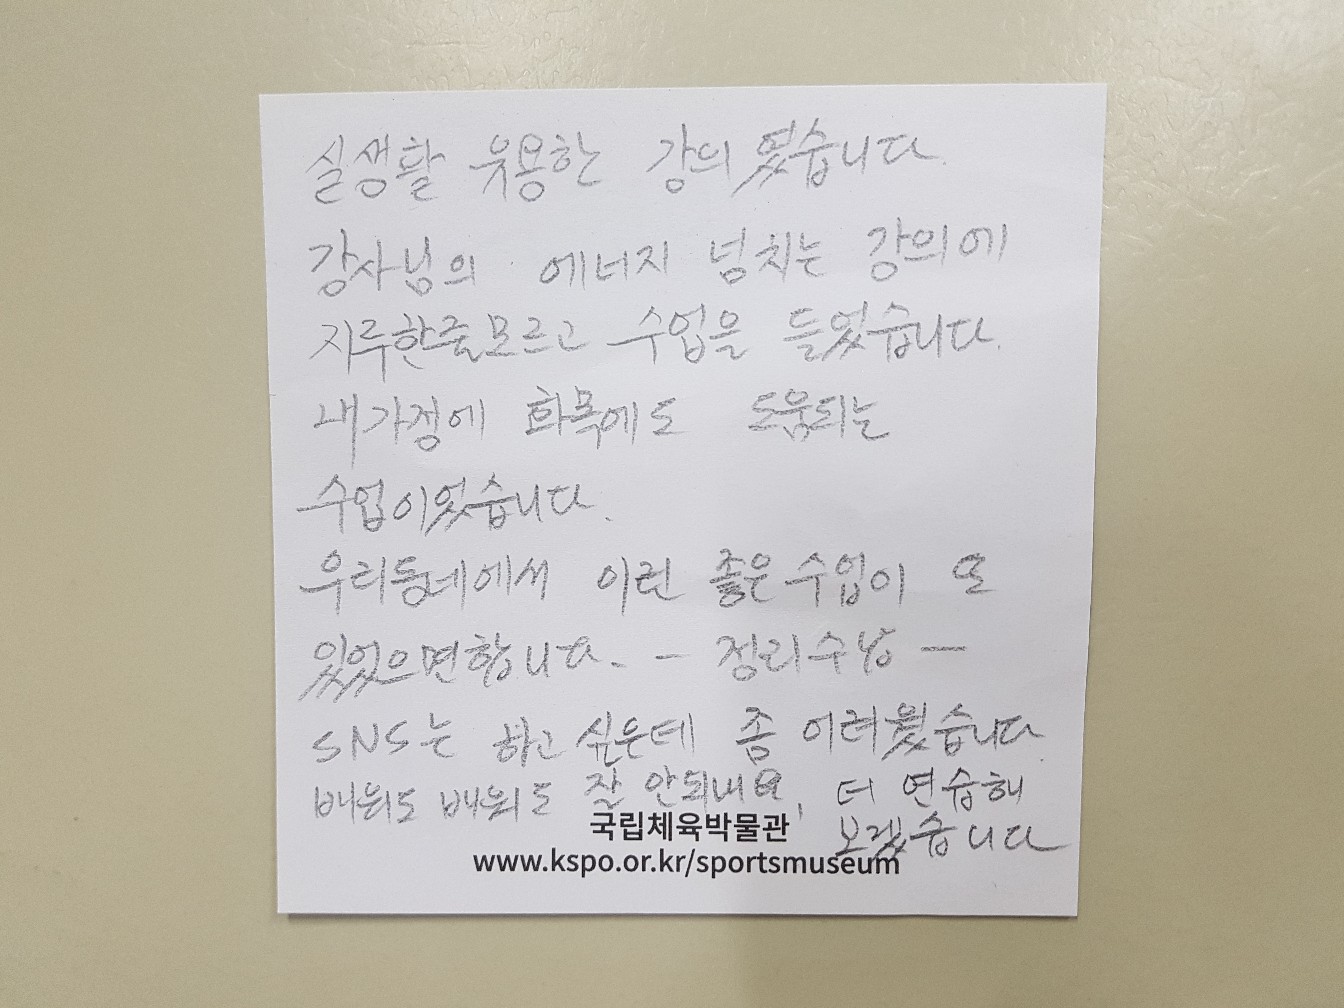 실생활 유용한 강의였습니다.
강사님의 에너지 넘치는 강의에
지루한줄모르고 수업을 들었습니다.
내가정에 화목에도 도움되는
수업이었습니다.
우리동네에서 이런 좋은 수업이 또
있었으면합니다. - 정리수납 -
SNS는 하고 싶은데 좀 어려웠습니다
배워도 배워도 잘 안되내요, 더 연습해
보겠습니다
국립체육박물관
www.kspo.or.kr/sportsmuseum